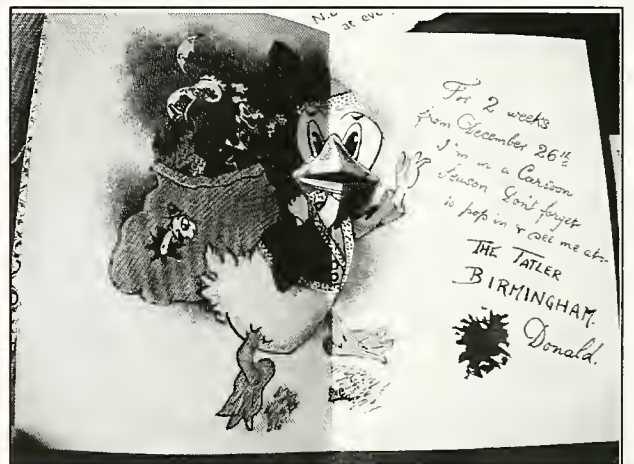 at eve
For 2 weeks
from December 26th
I'm in a Cartoon
Season Don't forget
to pop in & see me at-
THE TATLER
BIRMINGHAM.
Donald.